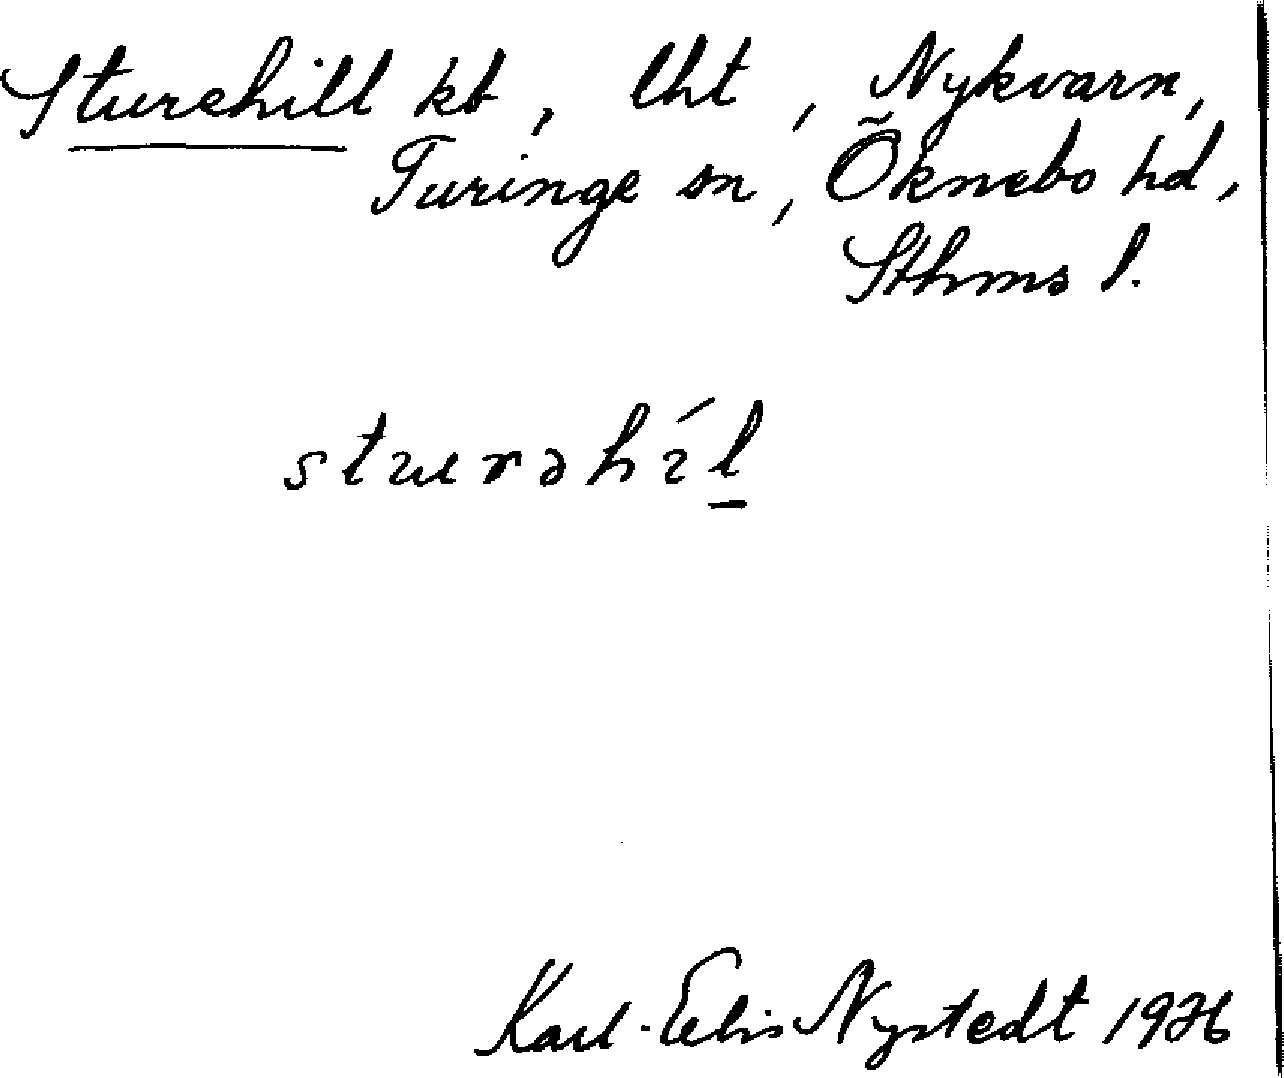 Sturehill kb, lht, Nykvarn,
Turinge sn, Öknebo hd,
Sthms l.
sturəhíl
Karl-Elis Nystedt 1926